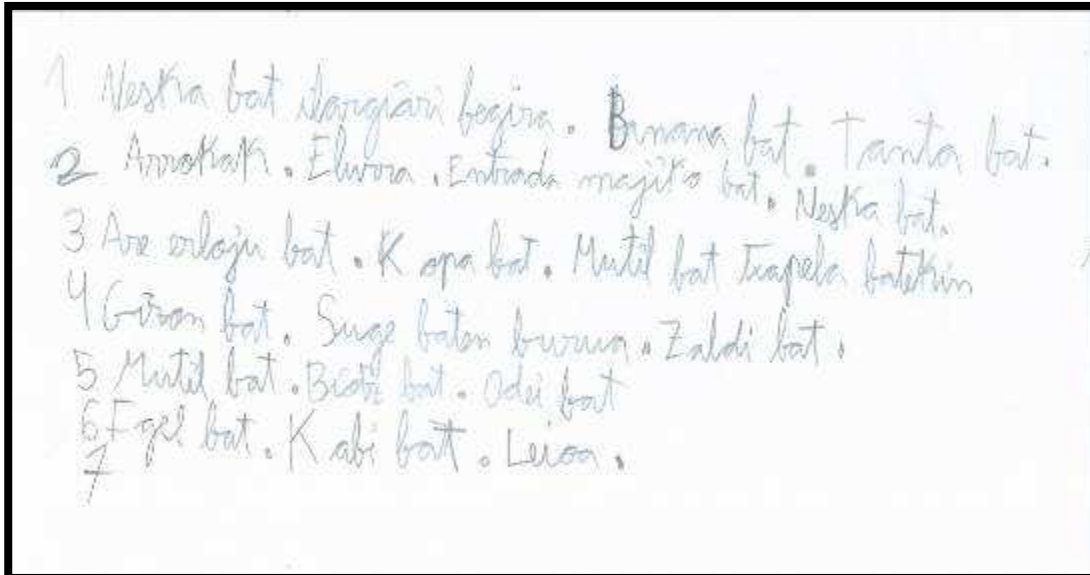 1 Neska bat ilargiari begira. Banana bat. Tanta bat.
2 Arrokak. Elurra. Entrada majiko bat. Neska bat.
3 Are erloju bat. Kopa bat. Mutil bat txapela batekin
4 Gizon bat. Suge baten burua. Zaldi bat.
5 Mutil bat. bat. Odei bat
6 Egel bat. Kabi bat. Leioa.
7